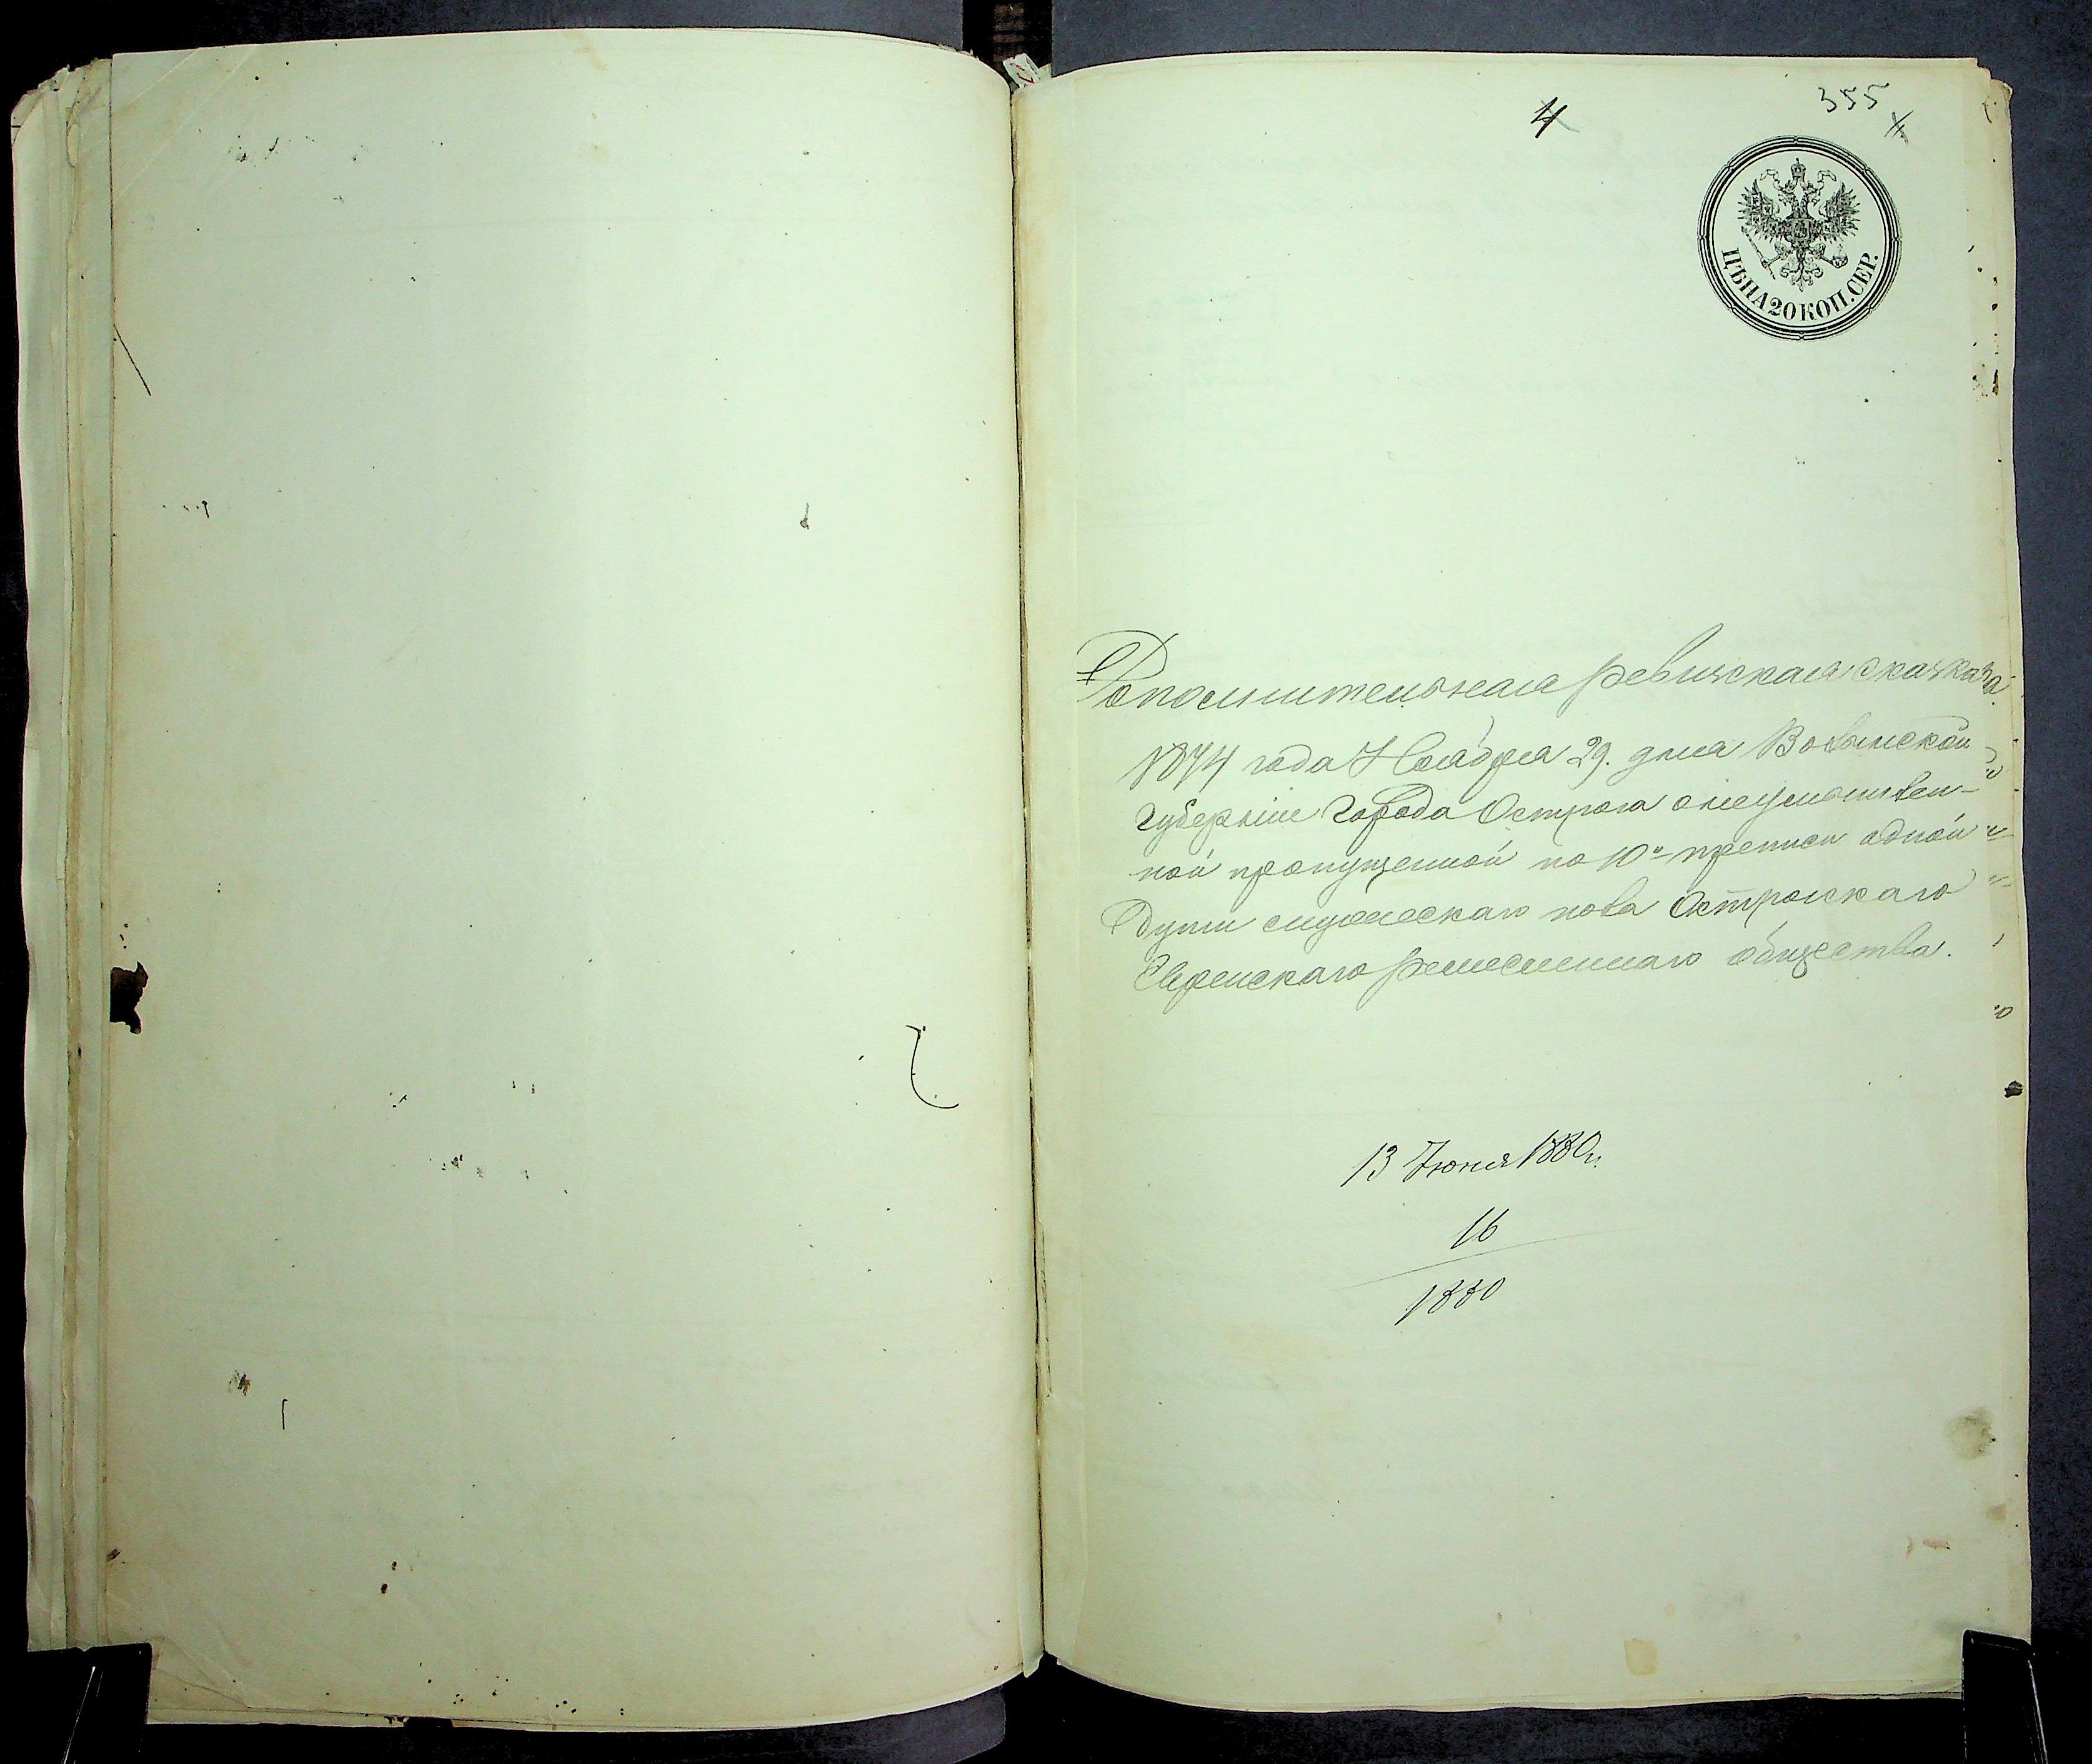 4
355
4
ЦѢНА 20 КОП. СЕР.
Дополнительная ревизская сказка
1874 года Ноября 29. дня Волынской
Губерніи Города Острога
ной пропущенной по 10й переписи одной
Души мужескаго пола Острожскаго
Еврейскаго ремесленнаго общества.
13 Іюня 1880 г.
16
1880